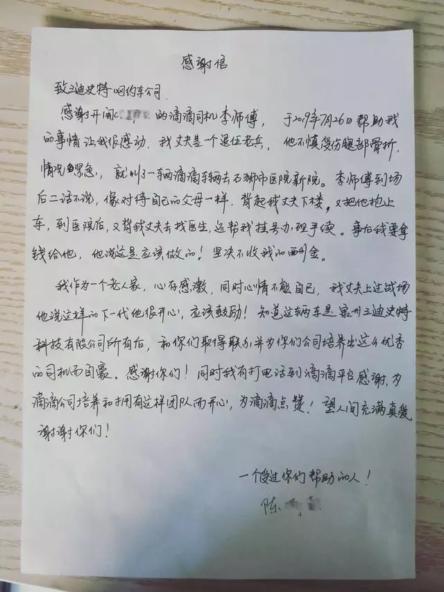 感谢信
致三迪史特网约车公司
感谢开闽C 的滴滴司机李师傅，于2019年7月26日帮助我
的事情让我很感动，我丈夫是个退伍老兵，他不慎受伤腿部骨折，
情况紧急，就叫了一辆滴滴车辆去石狮市医院新院。李师傅到场
后二话不说，像对待自己的父母一样，背起我丈夫下楼，又把他抱上
车，到医院后，又背我丈夫去找医生，还帮我挂号办理手续。事后我要拿
钱给他，他说这是应该做的！坚决不收我的酬金。
我作为一个老人家，心存感激，同时心情不能自已，我丈夫上过战场
他说这样的下一代他很开心，应该鼓励！知道这辆车是泉州三迪史特
科技有限公司所有后，和你们取得联系并为你们公司培养出这么优秀
的司机而自豪。感谢你们！同时我有打电话到滴滴平台感谢，为
滴滴公司培养和拥有这样团队而开心，为滴滴点赞！望人间充满真爱
谢谢你们！
一个受过你们帮助的人！
陈